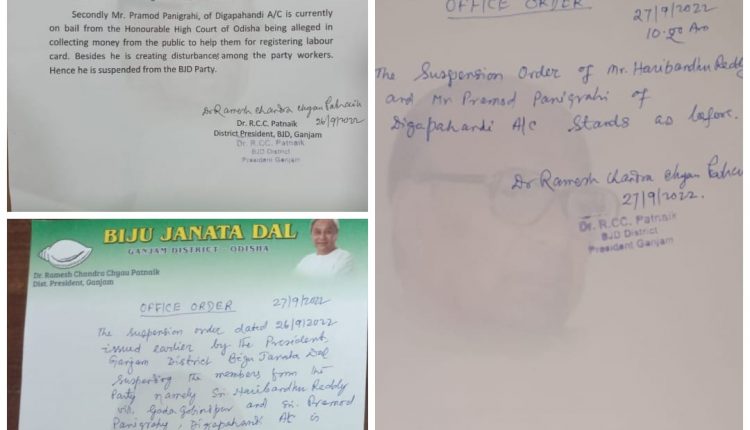 Secondly Mr. Pramod Panigrahi, of Digapahandi A/C is currently
on bail from the Honourable High Court of Odisha being alleged in
collecting money from the public to help them for registering labour
card. Besides he is creating disturbances among the party workers.
Hence he is suspended from the BJD Party.
Dr Ramesh Chandra Chyau Patnaik
26/9/2022
Dr. R.C.C. Patnaik
District President, BJD, Ganjam
Dr. R.CC. Patnaik
BJD District
President Ganjam
BIJU JANATA DAL
GANJAM DISTRICT - ODISHA
Dr. Ramesh Chandra Chyau Patnaik
Dist. President, Ganjam
OFFICE ORDER 27/9/2022
The suspension order dated 26/9/2022
issued earlier by the President
Ganjam District Biju Janata Dal
suspending the members from the
Party namely Sri. Haribandhu Reddy
vill. Gada Gobindpur and Sri. Pramod
Panigrahy, Digapahandi A/C is
OFFICE ORDER
27/9/2022
10.30 Am
The Suspension Order of Mr. Haribandhu Reddy
and Mr Pramod Panigrahi of
Digapahandi A/c stands as before.
Dr Ramesh Chandra Chyau Patnaik
27/9/2022.
Dr. R.CC. Patnaik
BJD District
President Ganjam